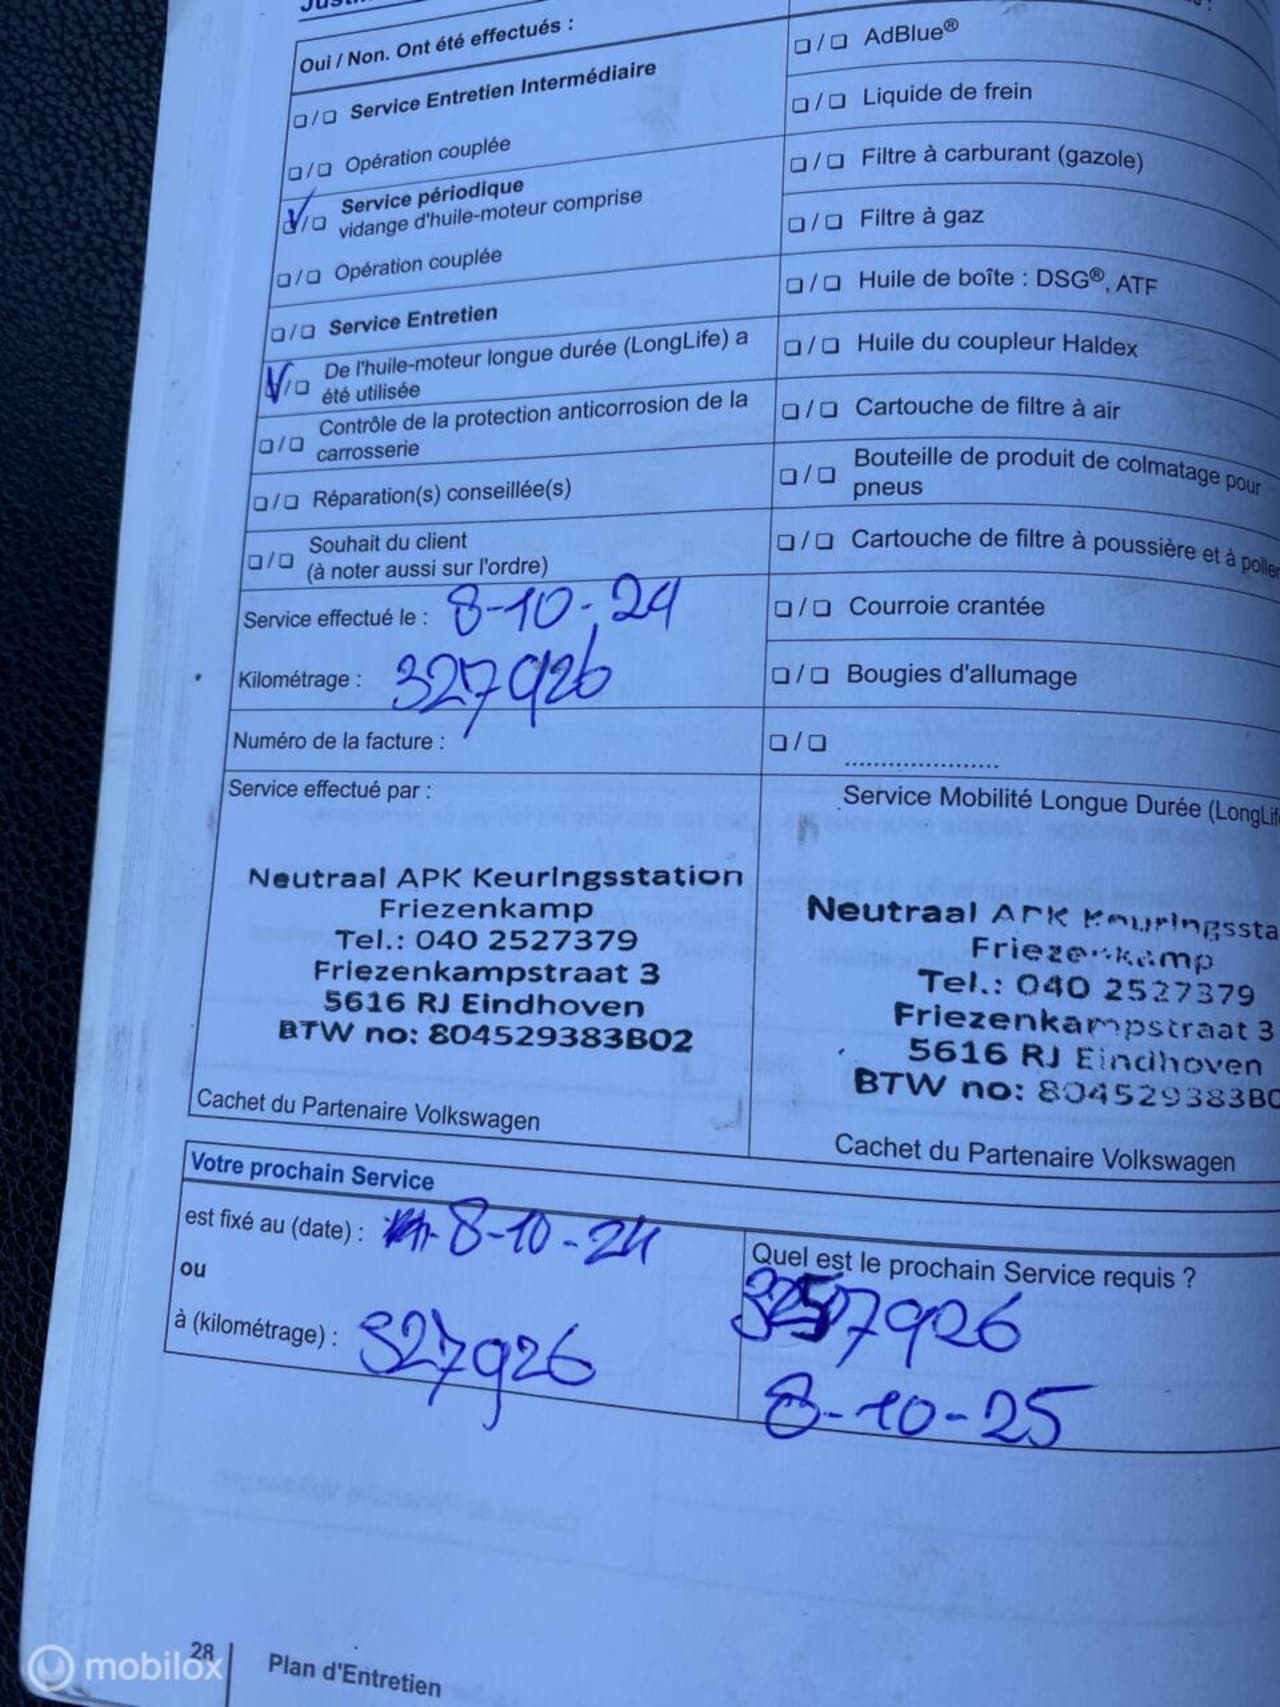 Oui / Non. Ont été effectués :
❏/❏ Service Entretien Intermédiaire
❏/❏ Opération couplée
✓/❏ Service périodique
vidange d'huile-moteur comprise
❏/❏ Opération couplée
❏/❏ Service Entretien
✓/❏ De l'huile-moteur longue durée (LongLife) a
été utilisée
❏/❏ Contrôle de la protection anticorrosion de la
carrosserie
❏/❏ Réparation(s) conseillée(s)
❏/❏ Souhait du client
(à noter aussi sur l'ordre)
Service effectué le : 8-10-24
Kilométrage : 327926
Numéro de la facture :
Service effectué par :
Neutraal APK Keuringsstation
Friezenkamp
Tel.: 040 2527379
Friezenkampstraat 3
5616 RJ Eindhoven
BTW no: 804529383B02
Cachet du Partenaire Volkswagen
❏/❏ AdBlue®
❏/❏ Liquide de frein
❏/❏ Filtre à carburant (gazole)
❏/❏ Filtre à gaz
❏/❏ Huile de boîte : DSG®, ATF
❏/❏ Huile du coupleur Haldex
❏/❏ Cartouche de filtre à air
❏/❏ Bouteille de produit de colmatage pour
pneus
❏/❏ Cartouche de filtre à poussière et à pollen
❏/❏ Courroie crantée
❏/❏ Bougies d'allumage
❏/❏ .....................
Service Mobilité Longue Durée (LongLif
Neutraal APK Keuringssta
Friezenkamp
Tel.: 040 2527379
Friezenkampstraat 3
5616 RJ Eindhoven
BTW no: 804529383B0
Cachet du Partenaire Volkswagen
Votre prochain Service
est fixé au (date) : 8-10-24
ou
à (kilométrage) : 327926
Quel est le prochain Service requis ?
7926
8-10-25
28
Plan d'Entretien
mobilox